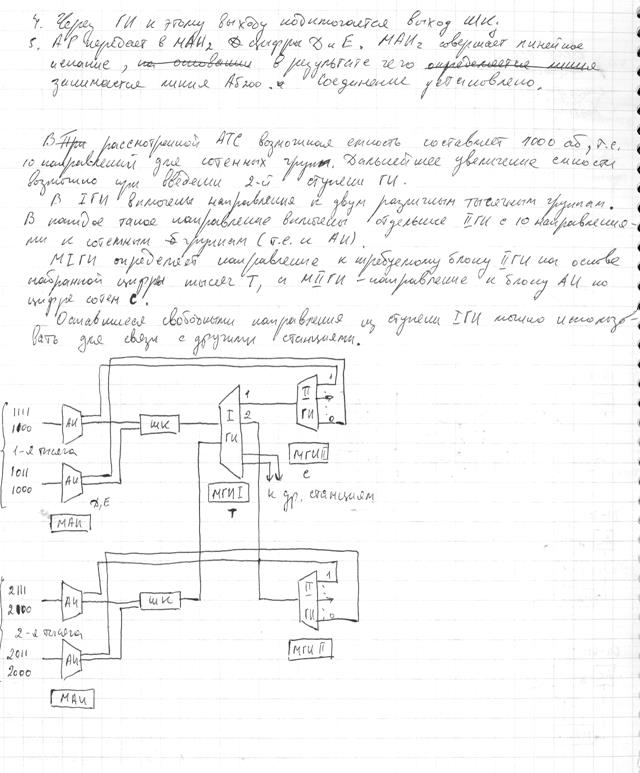 4. Через ГИ к этому выходу подключается выход ШК.
5. АР передает в МАИ₂ цифры Д и Е. МАИ₂ совершает линейное
искание, на основании в результате чего определяется линия
занимается линия Аб200. Соединение установлено.
В При рассмотренной АТС возможная емкость составляет 1000 аб, т.е.
10 направлений для сотенных групп. Дальнейшее увеличение емкости
возможно при введении 2-й ступени ГИ.
В IГИ включены направления к двум различным тысячным группам.
В каждое такое направление включены отдельные IIГИ с 10 направления-
ми к сотенным группам (т.е. к АИ).
МIГИ определяет направление к требуемому блоку IIГИ на основе
набранной цифры тысяч Т, а МIIГИ – направление к блоку АИ по
цифре сотен С.
Оставшиеся свободными направления из ступени IГИ можно использо-
вать для связи с другими станциями.
1111
1100
АИ
ШК
I
ГИ
1
2
II
ГИ
1
0
1-я тысяча
1011
1000
АИ
Д,Е
МАИ
МГИ I
Т
МГИ II
С
к др. станциям
2111
2100
АИ
ШК
II
ГИ
1
0
2-я тысяча
2011
2000
АИ
МАИ
МГИ II